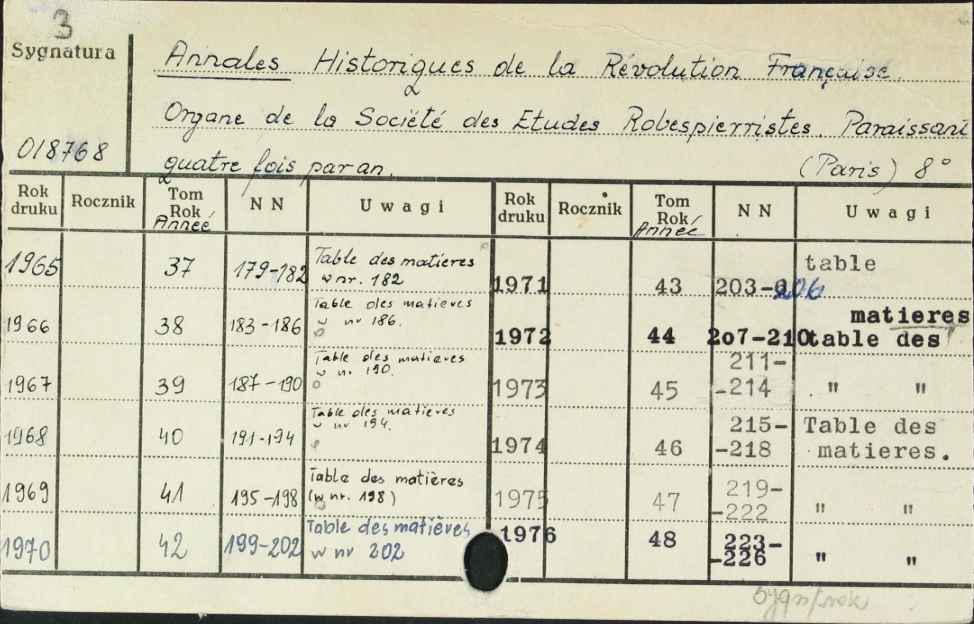 3
Sygnatura
018768
Annales Historiques de la Révolution Française.
Organe de la Société des Etudes Robespierristes. Paraissant
quatre fois par an. (Paris) 8°
Rok druku Rocznik Tom Rok/Année NN Uwagi Rok druku Rocznik Tom Rok/Année NN Uwagi
1965 37 179-182 Table des matieres w nr. 182
1966 38 183-186 Table des matieres w nr 186.
1967 39 187-190 Table des matieres w nr 190.
1968 40 191-194 Table des matieres w nr 194.
1969 41 195-198 Table des matières (w nr. 198)
1970 42 199-202 Table des matières w nr 202
1971 43 203-206 table
1972 44 2o7-210 table des matieres
1973 45 211--214 " "
1974 46 215--218 Table des matieres.
1975 47 219--222 " "
1976 48 223--226 " "
Sygn/rok